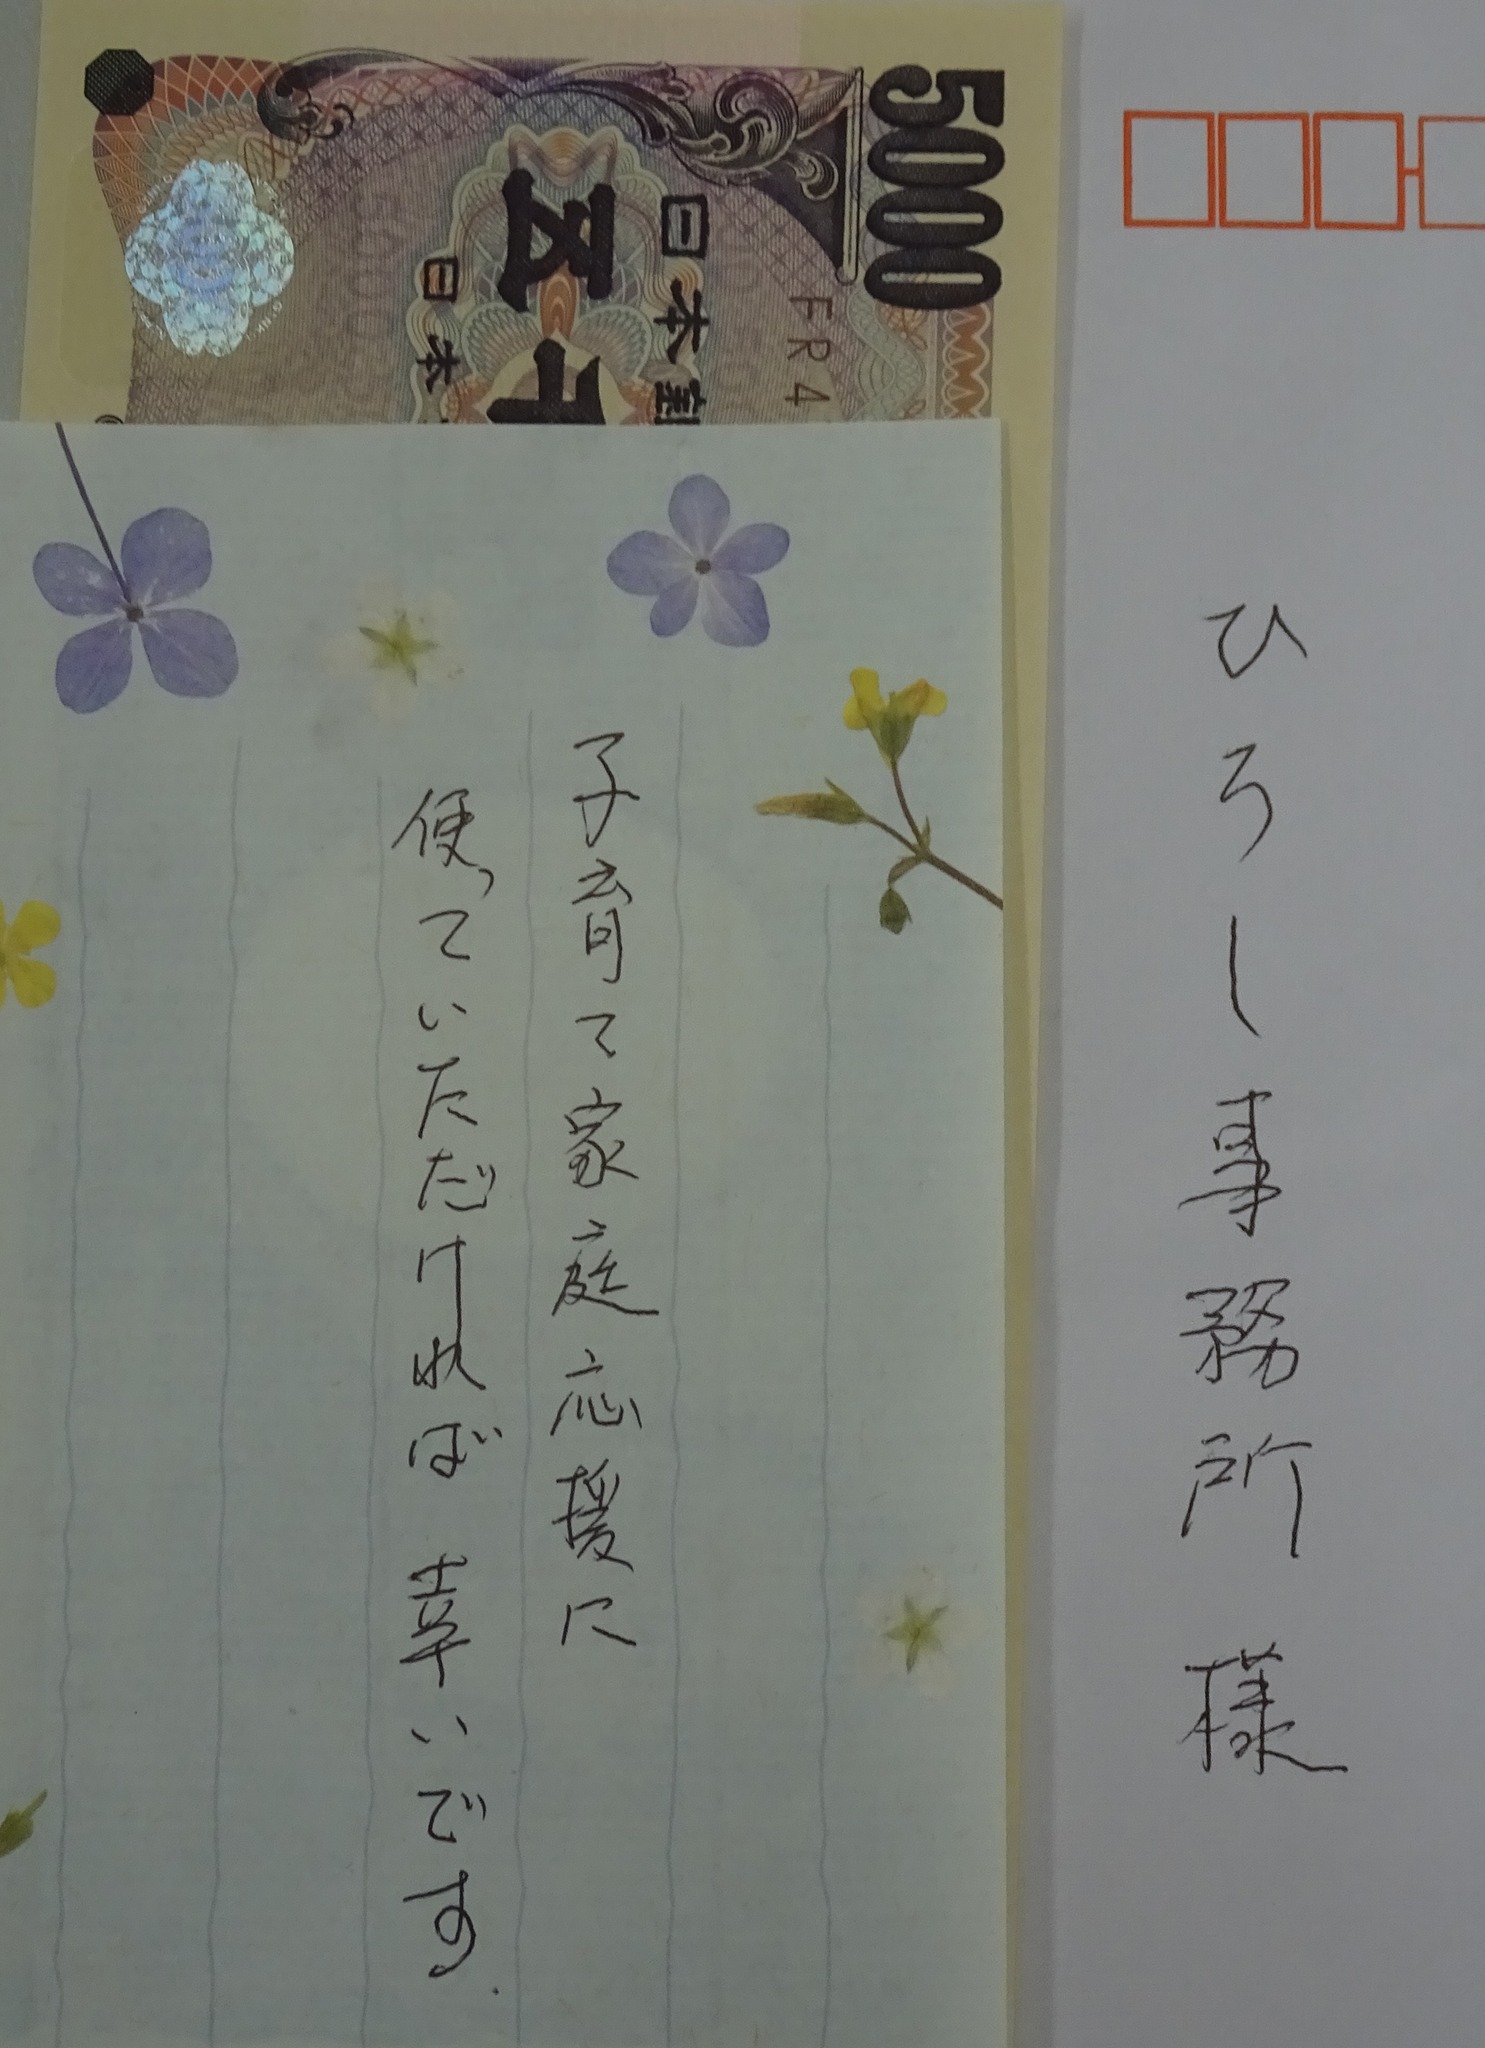 ひろし事務所 様
子育て家庭応援に
使っていただければ幸いです.
5000
FR4
日本
五千
日本